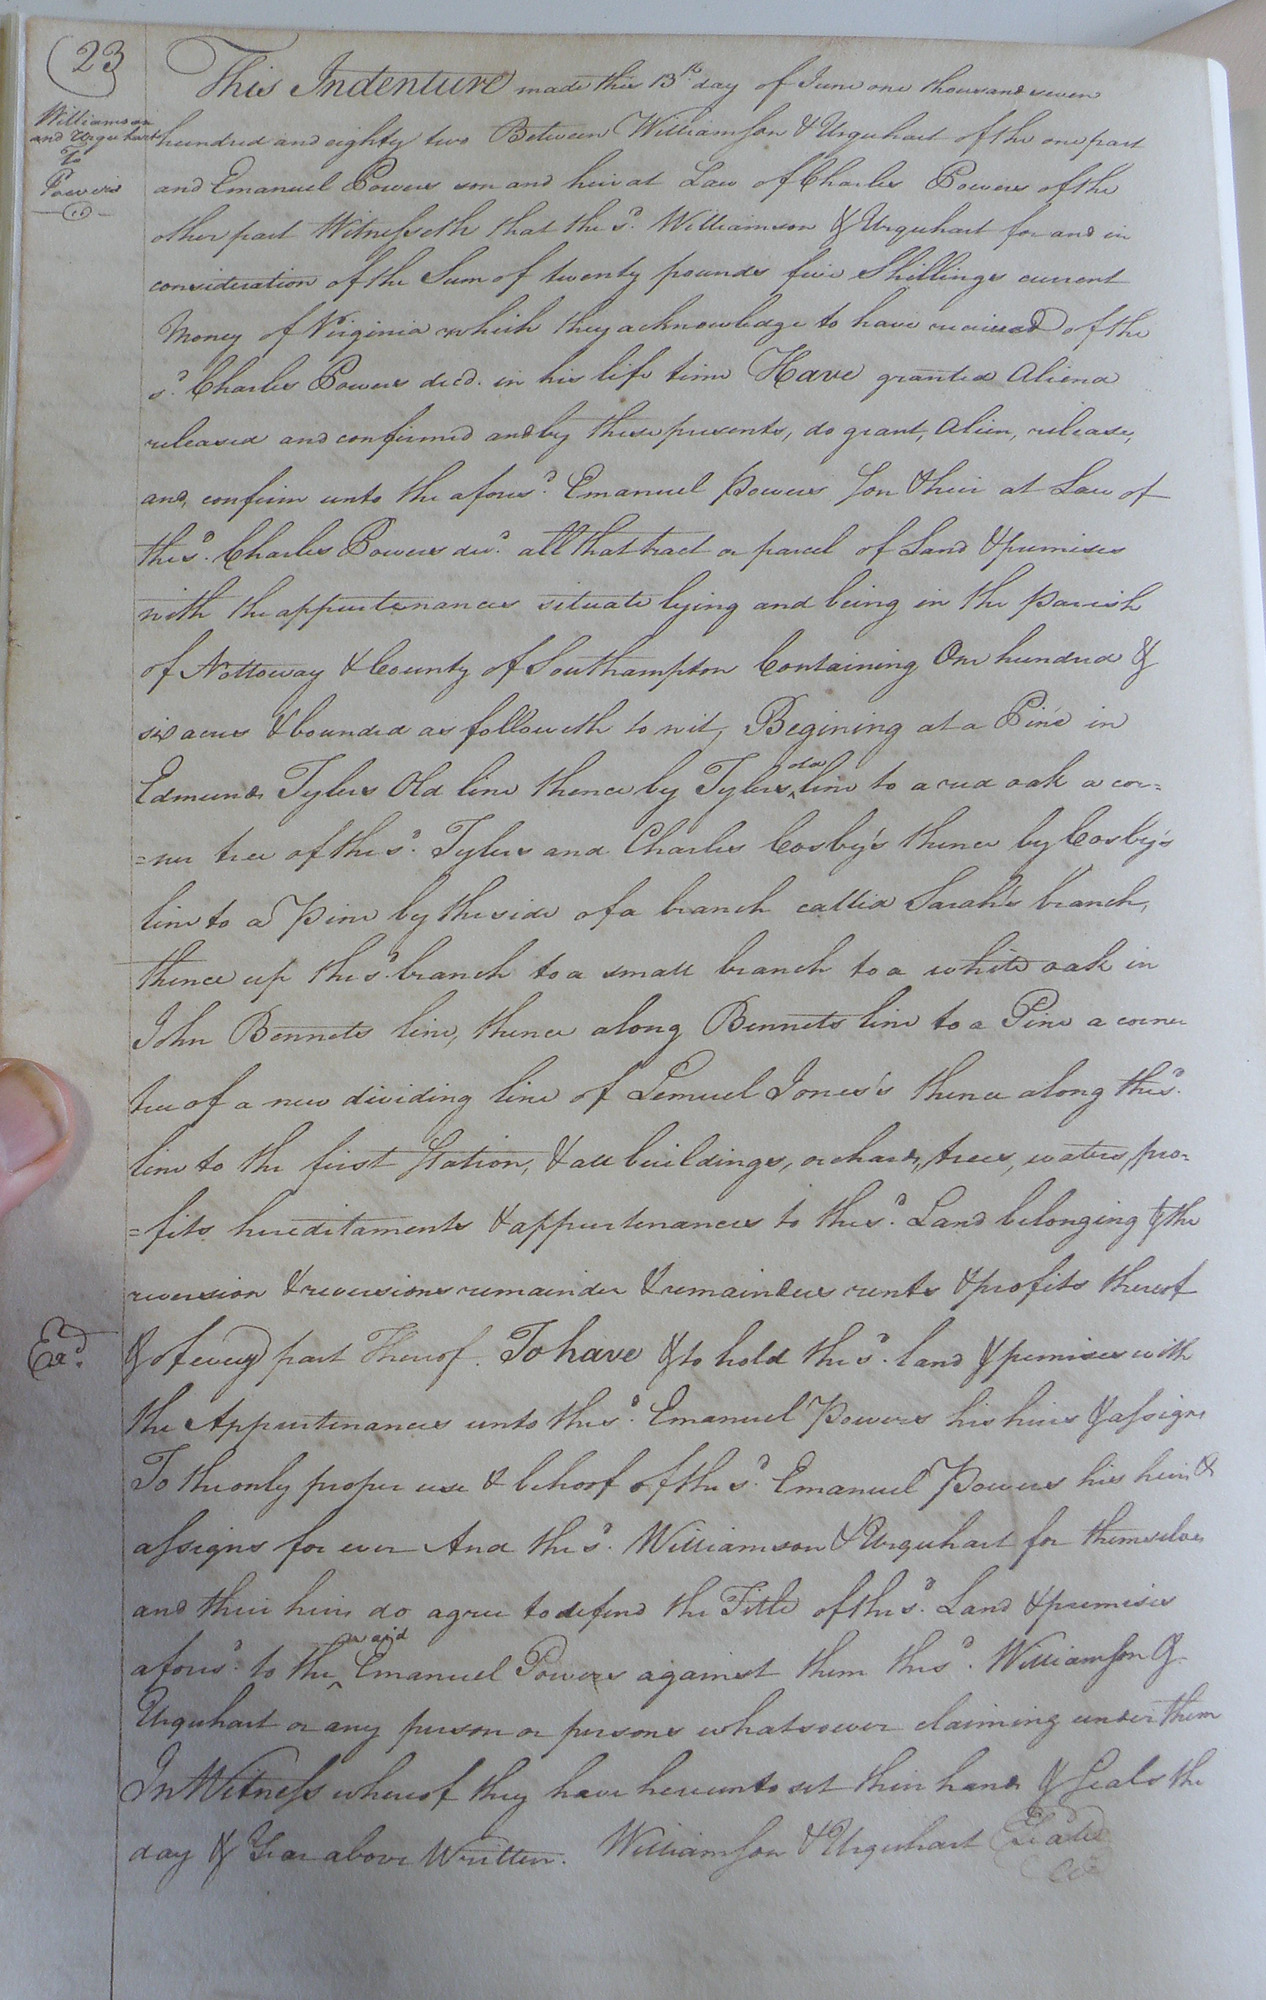 23
Williamson
and Urquhart
To
Powers
This Indenture made this 13th. day of June one thousand seven
hundred and eighty two Between Williamson & Urquhart of the one part
and Emanuel Powers son and heir at Law of Charles Powers of the
other part Witnesseth that the sd. Williamson & Urquhart for and in
consideration of the Sum of twenty pounds five Shillings current
Money of Virginia which they acknowledge to have received of the
sd. Charles Powers decd. in his life time Have granted Aliend
released and confirmed and by these presents, do grant, Alien, release,
and, confirm unto the aforesd. Emanuel Powers Son & heir at Law of
the sd. Charles Powers decd. all that tract or parcel of Land & premises
with the appurtenances situate lying and being in the Parish
of Nottoway & County of Southampton Containing One hundred &
six acres & bounded as followeth to wit, Begining at a Pine in
Edmund Tylers Old line thence by Tylers old line to a red oak a cor=
=ner tree of the sd. Tylers and Charles Cosby's thence by Cosby's
line to a Pine by the side of a branch called Sarah's branch,
thence up the sd branch to a small branch to a white oak in
John Bennets line, thence along Bennets line to a Pine a corner
tree of a new dividing line of Lemuel Jones's thence along the sd.
line to the first Station, & all buildings, orchards, trees, waters, pro=
=fits hereditaments & appurtenances to the sd. Land belonging & the
reversion & reversions remainder & remainders rents & profits thereof
Exd.
& of every part Thereof. To have & to hold the sd. land & premises with
the Appurtenances unto the sd. Emanuel Powers his heirs & assigns
To the only proper use & behoof of the sd. Emanuel Powers his heirs &
assigns for ever And the sd. Williamson & Urquhart for themselves
and their heirs do agree to defend the Title of the sd. Land & premises
aforesd. to the said Emanuel Powers against them the sd. Williamson &
Urquhart or any person or persons whatsoever claiming under them
In Witness whereof they have hereunto set their hands & Seals the
day & Year above Written. Williamson & Urquhart Seal